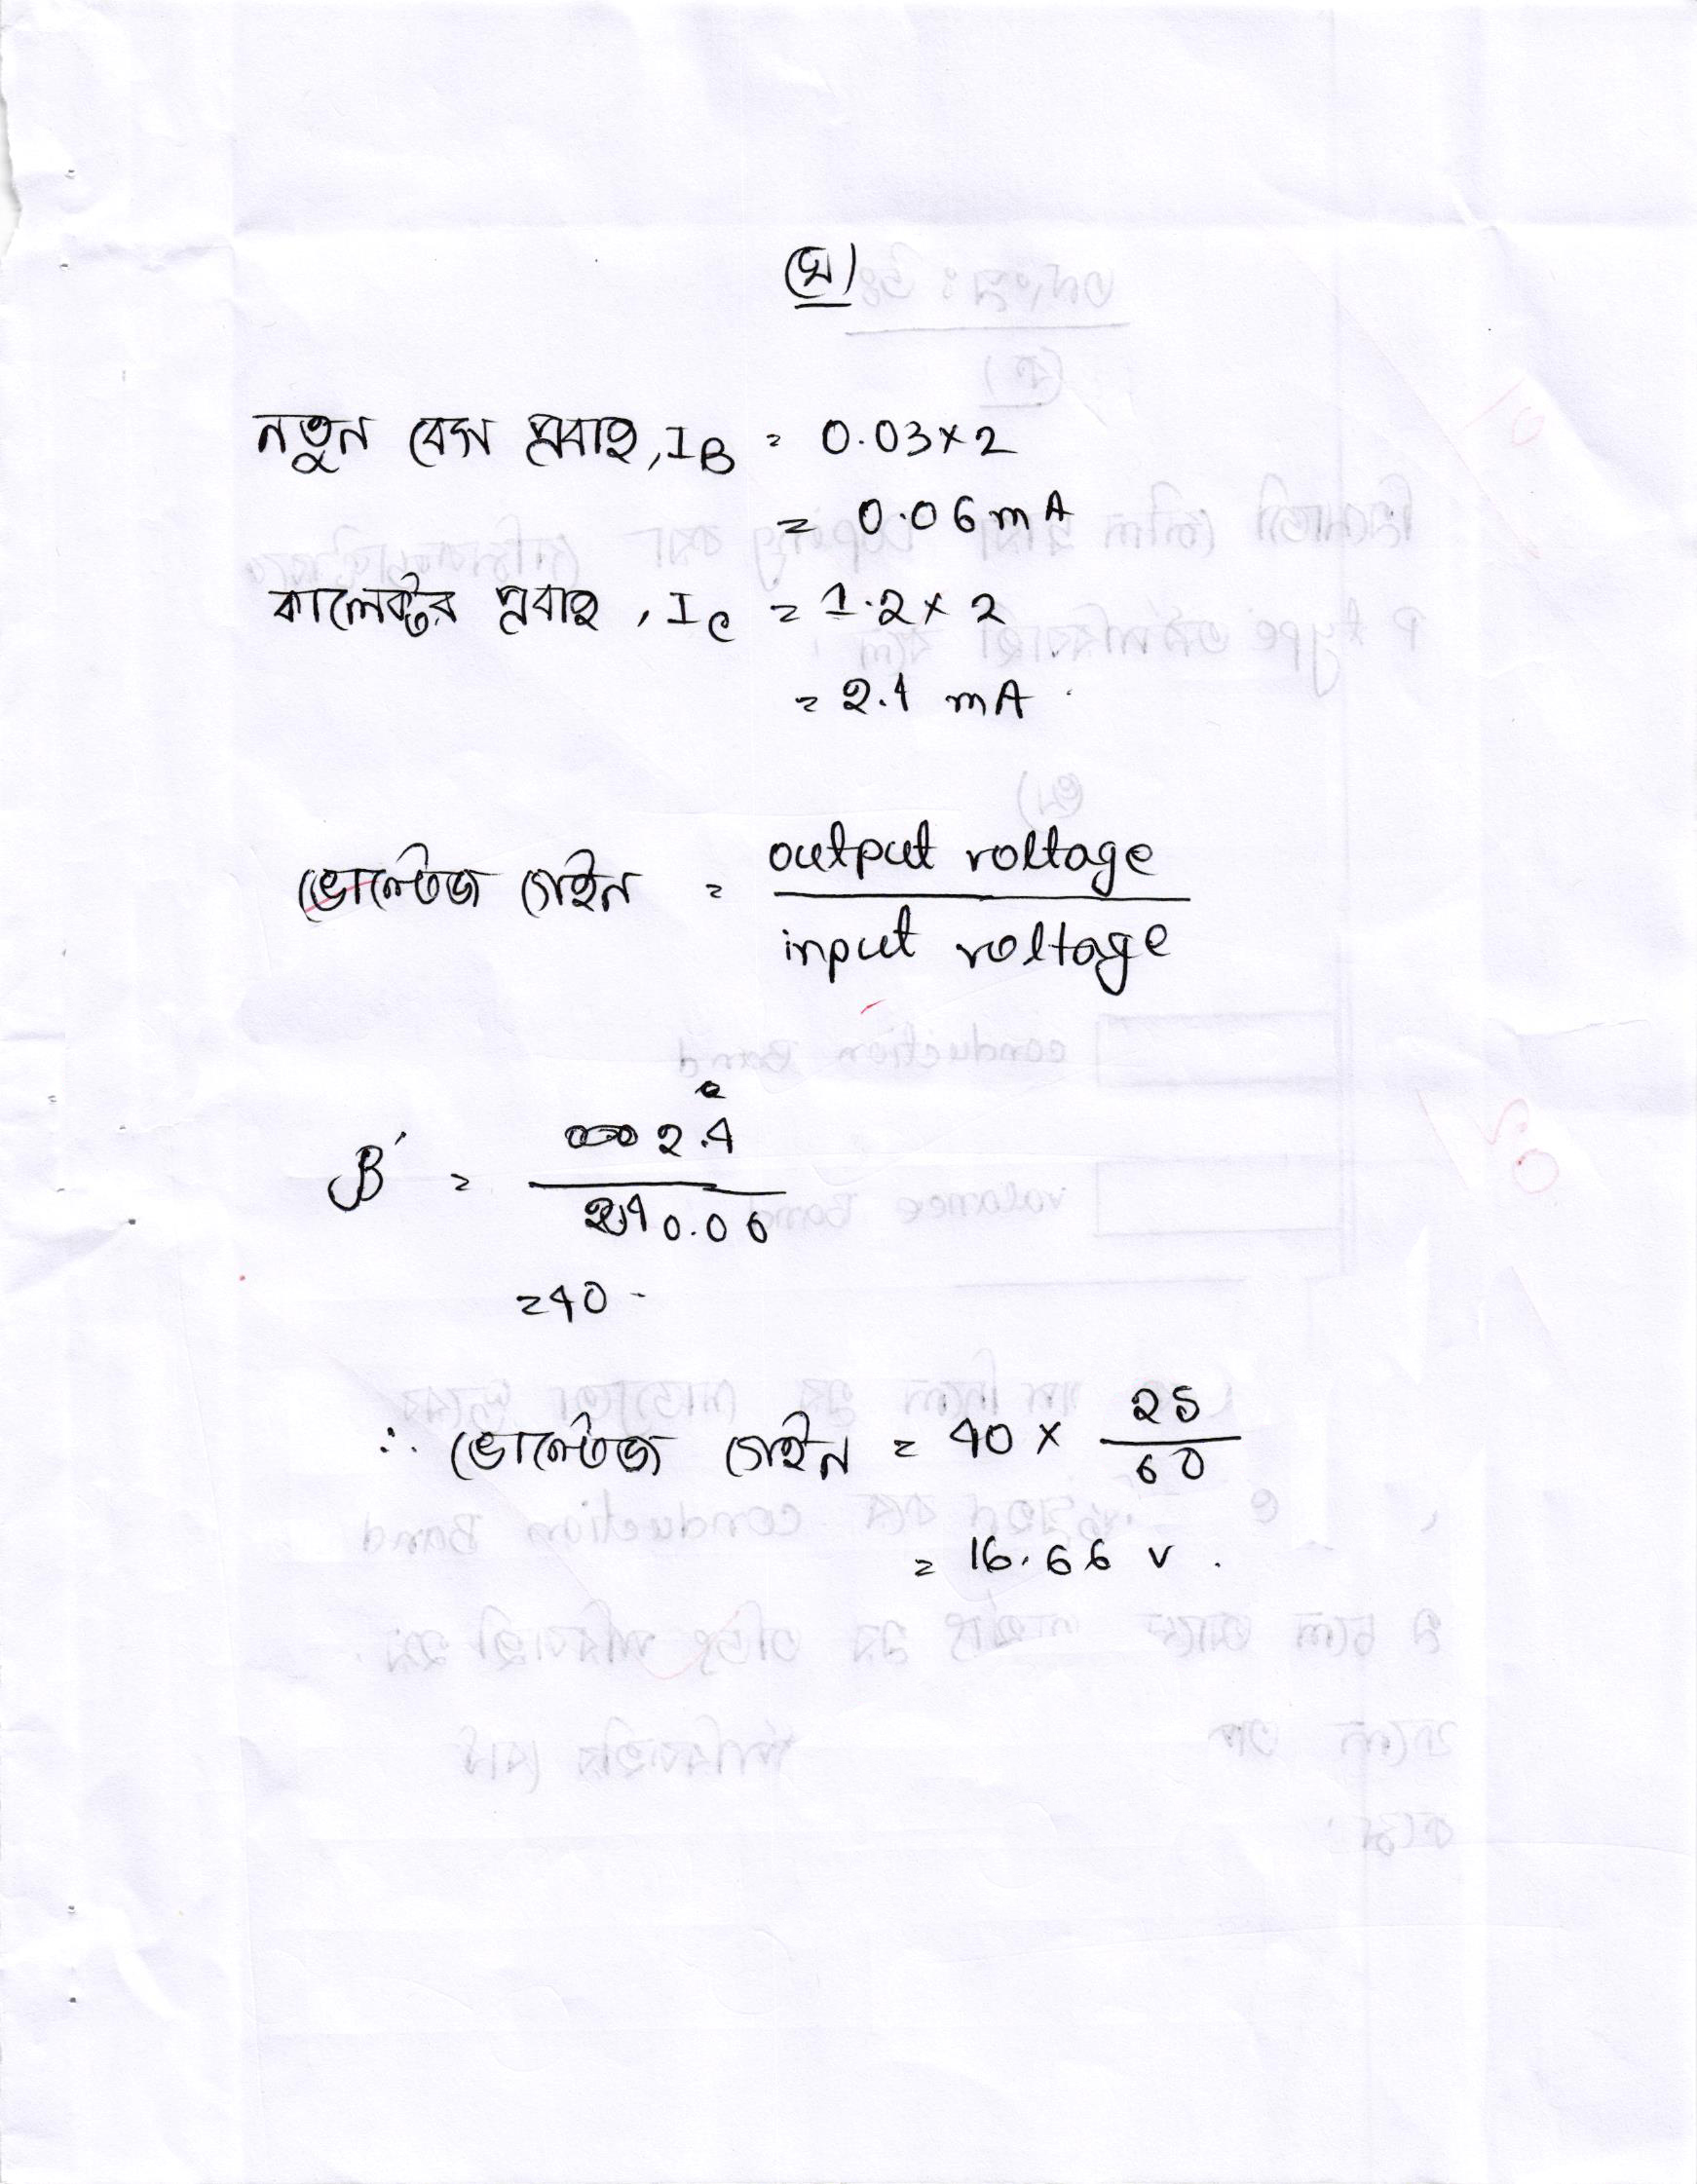 (ঘ)
নতুন বেস প্রবাহ, IB = 0.03×2
= 0.06 mA
কালেক্টর প্রবাহ, Ic = 1.2 × 2
= 2.4 mA
ভোল্টেজ গেইন = output voltage / input voltage
β' = 2.4 / 0.06
= 40
∴ ভোল্টেজ গেইন = 40 × 25 / 60
= 16.66 v.